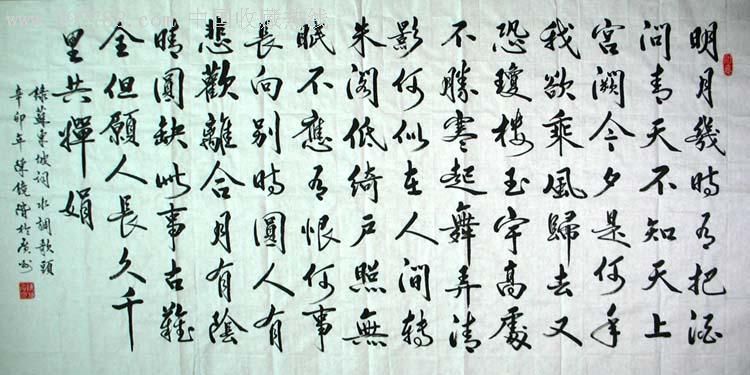 明月幾時有把酒
問青天不知天上
宮闕今夕是何年
我欲乘風歸去又
恐瓊楼玉宇高處
不勝寒起舞弄清
影何似在人間轉
朱閣低綺戶照無
眠不應有恨何事
長向别時圓人有
悲歡離合月有陰
晴圓缺此事古難
全但願人長久千
里共嬋娟
錄蘇東坡詞水調歌頭
辛卯年陳於廣州
中国收藏热线